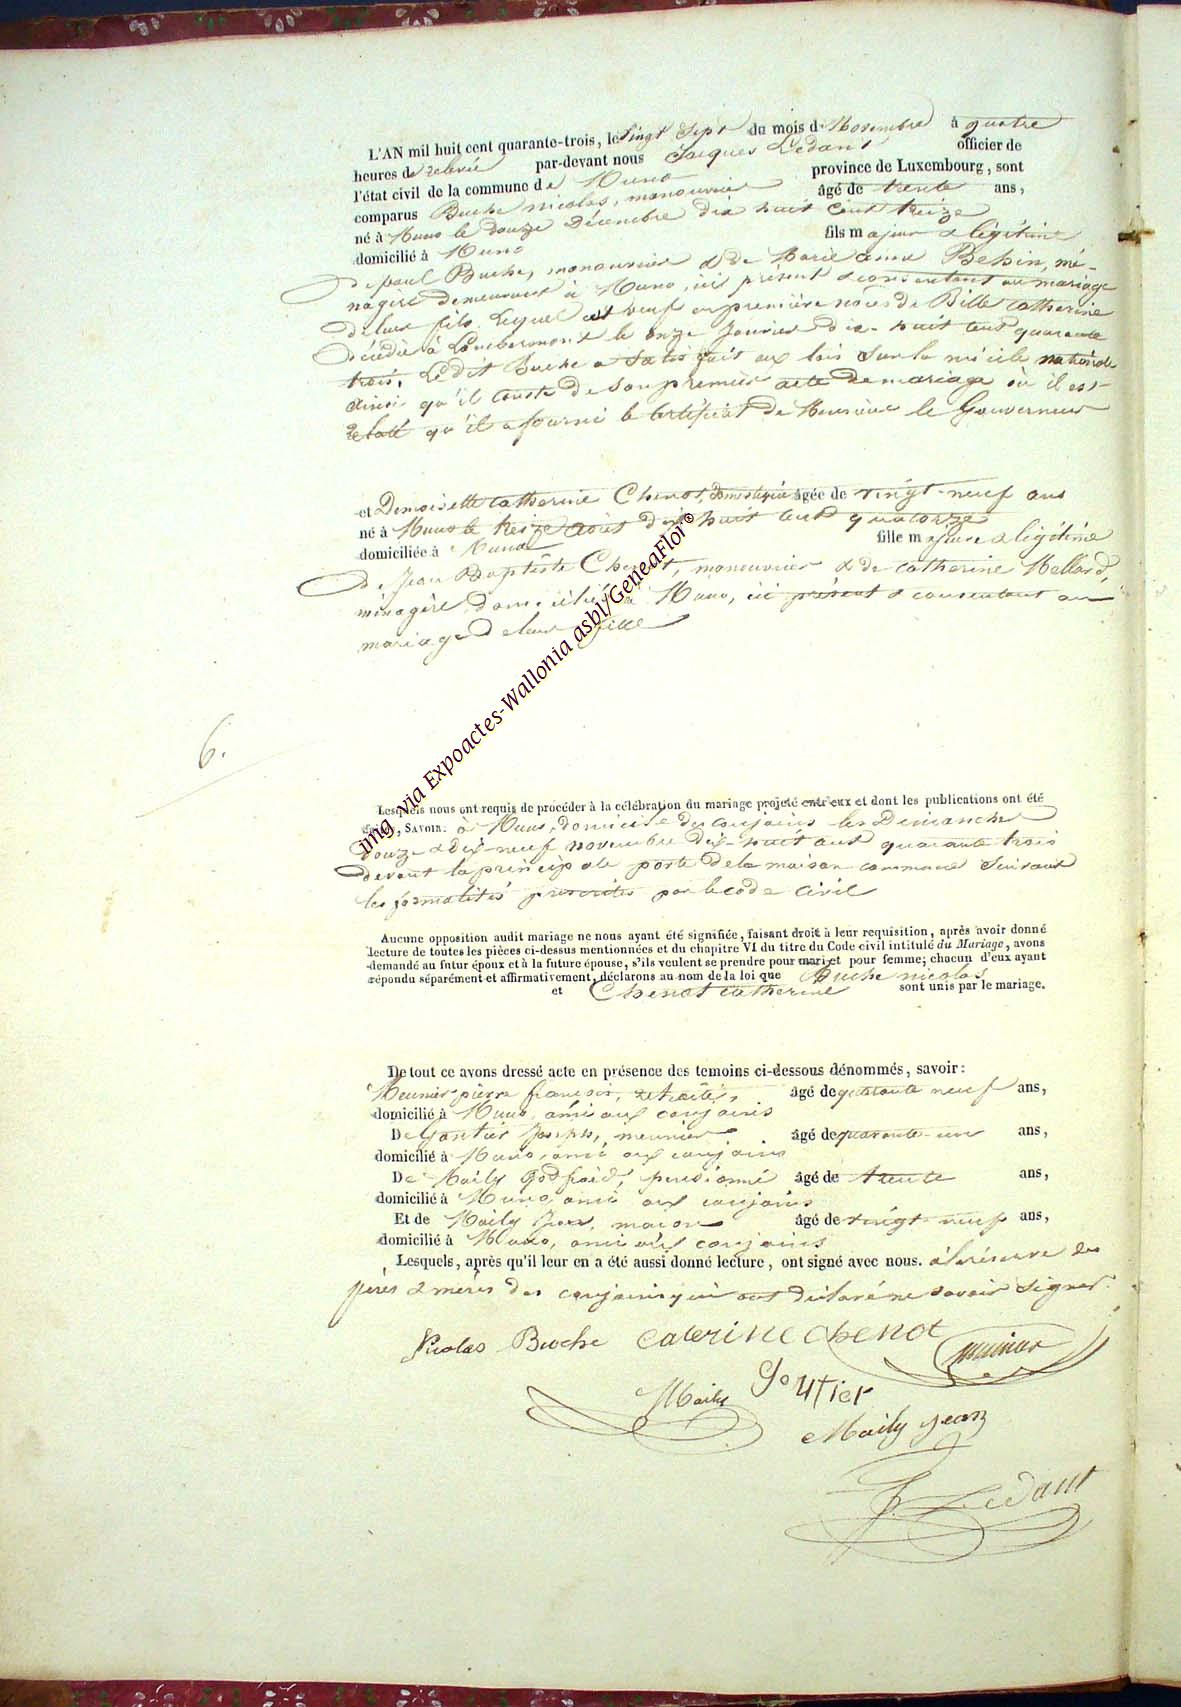 L'AN mil huit cent quarante-trois, le vingt Sept du mois de Novembre à quatre
heures de relevée par-devant nous Jacques Ledant officier de
l'état civil de la commune de Muno province de Luxembourg, sont
comparus Buche nicolas, manouvrier âgé de trente ans,
né à Muno le douze Décembre dix huit cent treize
domicilié à Muno fils majeur & légitime
de paul Buche, manouvrier & de Marie anne Behin, mé-
nagère demeurant à Muno, ici présent & consentant au mariage
de leur fils, lequel est veuf en première nôces de Bille Catherine
décédée à le onze Janvier dix-huit cent quarante
trois. Ledit Buche a Satisfait aux lois Sur la milice nationale
ainsi qu'il conste de Son premier acte de mariage où il est
relaté qu'il a fourni le Certificat de Monsieur le Gouverneur
et Demoiselle Catherine Chenot, Domestique âgée de vingt-neuf ans
né à Muno le treize août dix huit cent quatorze
domiciliée à Muno fille majeure & légitime
de Jean Baptiste Chenot, manouvrier & de Catherine Mellard,
ménagère, domiciliés à Muno, ici présent & consentant au
mariage de leur fille
6.
Lesquels nous ont requis de procéder à la célébration du mariage projeté entr'eux et dont les publications ont été
faites, SAVOIR: à Muno, domicile des conjoints les Dimanche
douze & dix-neuf novembre dix-huit cent quarante trois
devant la principale porte de la maison commune Suivant
les formalités prescrites par le code Civil
Aucune opposition audit mariage ne nous ayant été signifiée, faisant droit à leur requisition, après avoir donné
lecture de toutes les pièces ci-dessus mentionnées et du chapitre VI du titre du Code civil intitulé du Mariage, avons
demandé au futur époux et à la future épouse, s'ils veulent se prendre pour mari et pour femme; chacun d'eux ayant
répondu séparément et affirmativement, déclarons au nom de la loi que Buche nicolas
et Chenot Catherine sont unis par le mariage.
De tout ce avons dressé acte en présence des temoins ci-dessous dénommés, savoir:
Meunier pierre françois, retraité, âgé de quarante neuf ans,
domicilié à Muno, ami aux conjoints
De Gontier Joseph, meunier âgé de quarante-un ans,
domicilié à Muno, ami aux conjoints
De Maily Godfroid, pensionné âgé de trente ans,
domicilié à Muno, ami aux conjoints
Et de Maily Jean, maçon âgé de vingt-neuf ans,
domicilié à Muno, ami aux conjoints
Lesquels, après qu'il leur en a été aussi donné lecture, ont signé avec nous. à la réserve des
pères & mères des conjoints qui ont déclaré ne savoir Signer.
Nicolas Buche Caterine chenot
Maily Goutier
Maily jean
J. Ledant
img via Expoactes-Wallonia asbl/GeneaFlor©